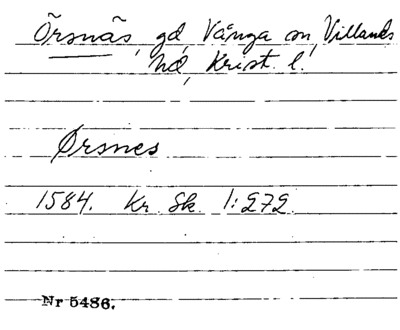 Örsnäs, gd, Vånga sn, Villands
hd, Krist. l.
Ørsnes
1584. Kr. Sk. 1:272.
Nr 5486.